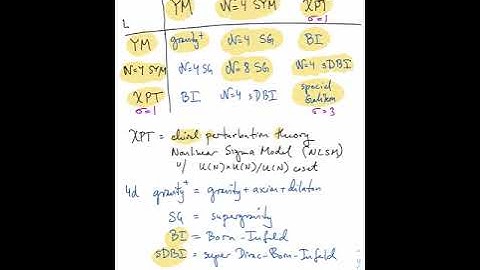 L YM N=4 SYM XPT
σ=1
YM gravity+ N=4 SG BI
N=4 SYM N=4 SG N=8 SG N=4 sDBI
XPT BI N=4 sDBI special Galileon
σ=1 σ=3
XPT = chiral perturbation theory
Nonlinear Sigma Model (NLSM)
w/ U(N)×U(N)/U(N) coset
4d gravity+ = gravity + axion + dilaton
SG = supergravity
BI = Born-Infeld
sDBI = super Dirac-Born-Infeld